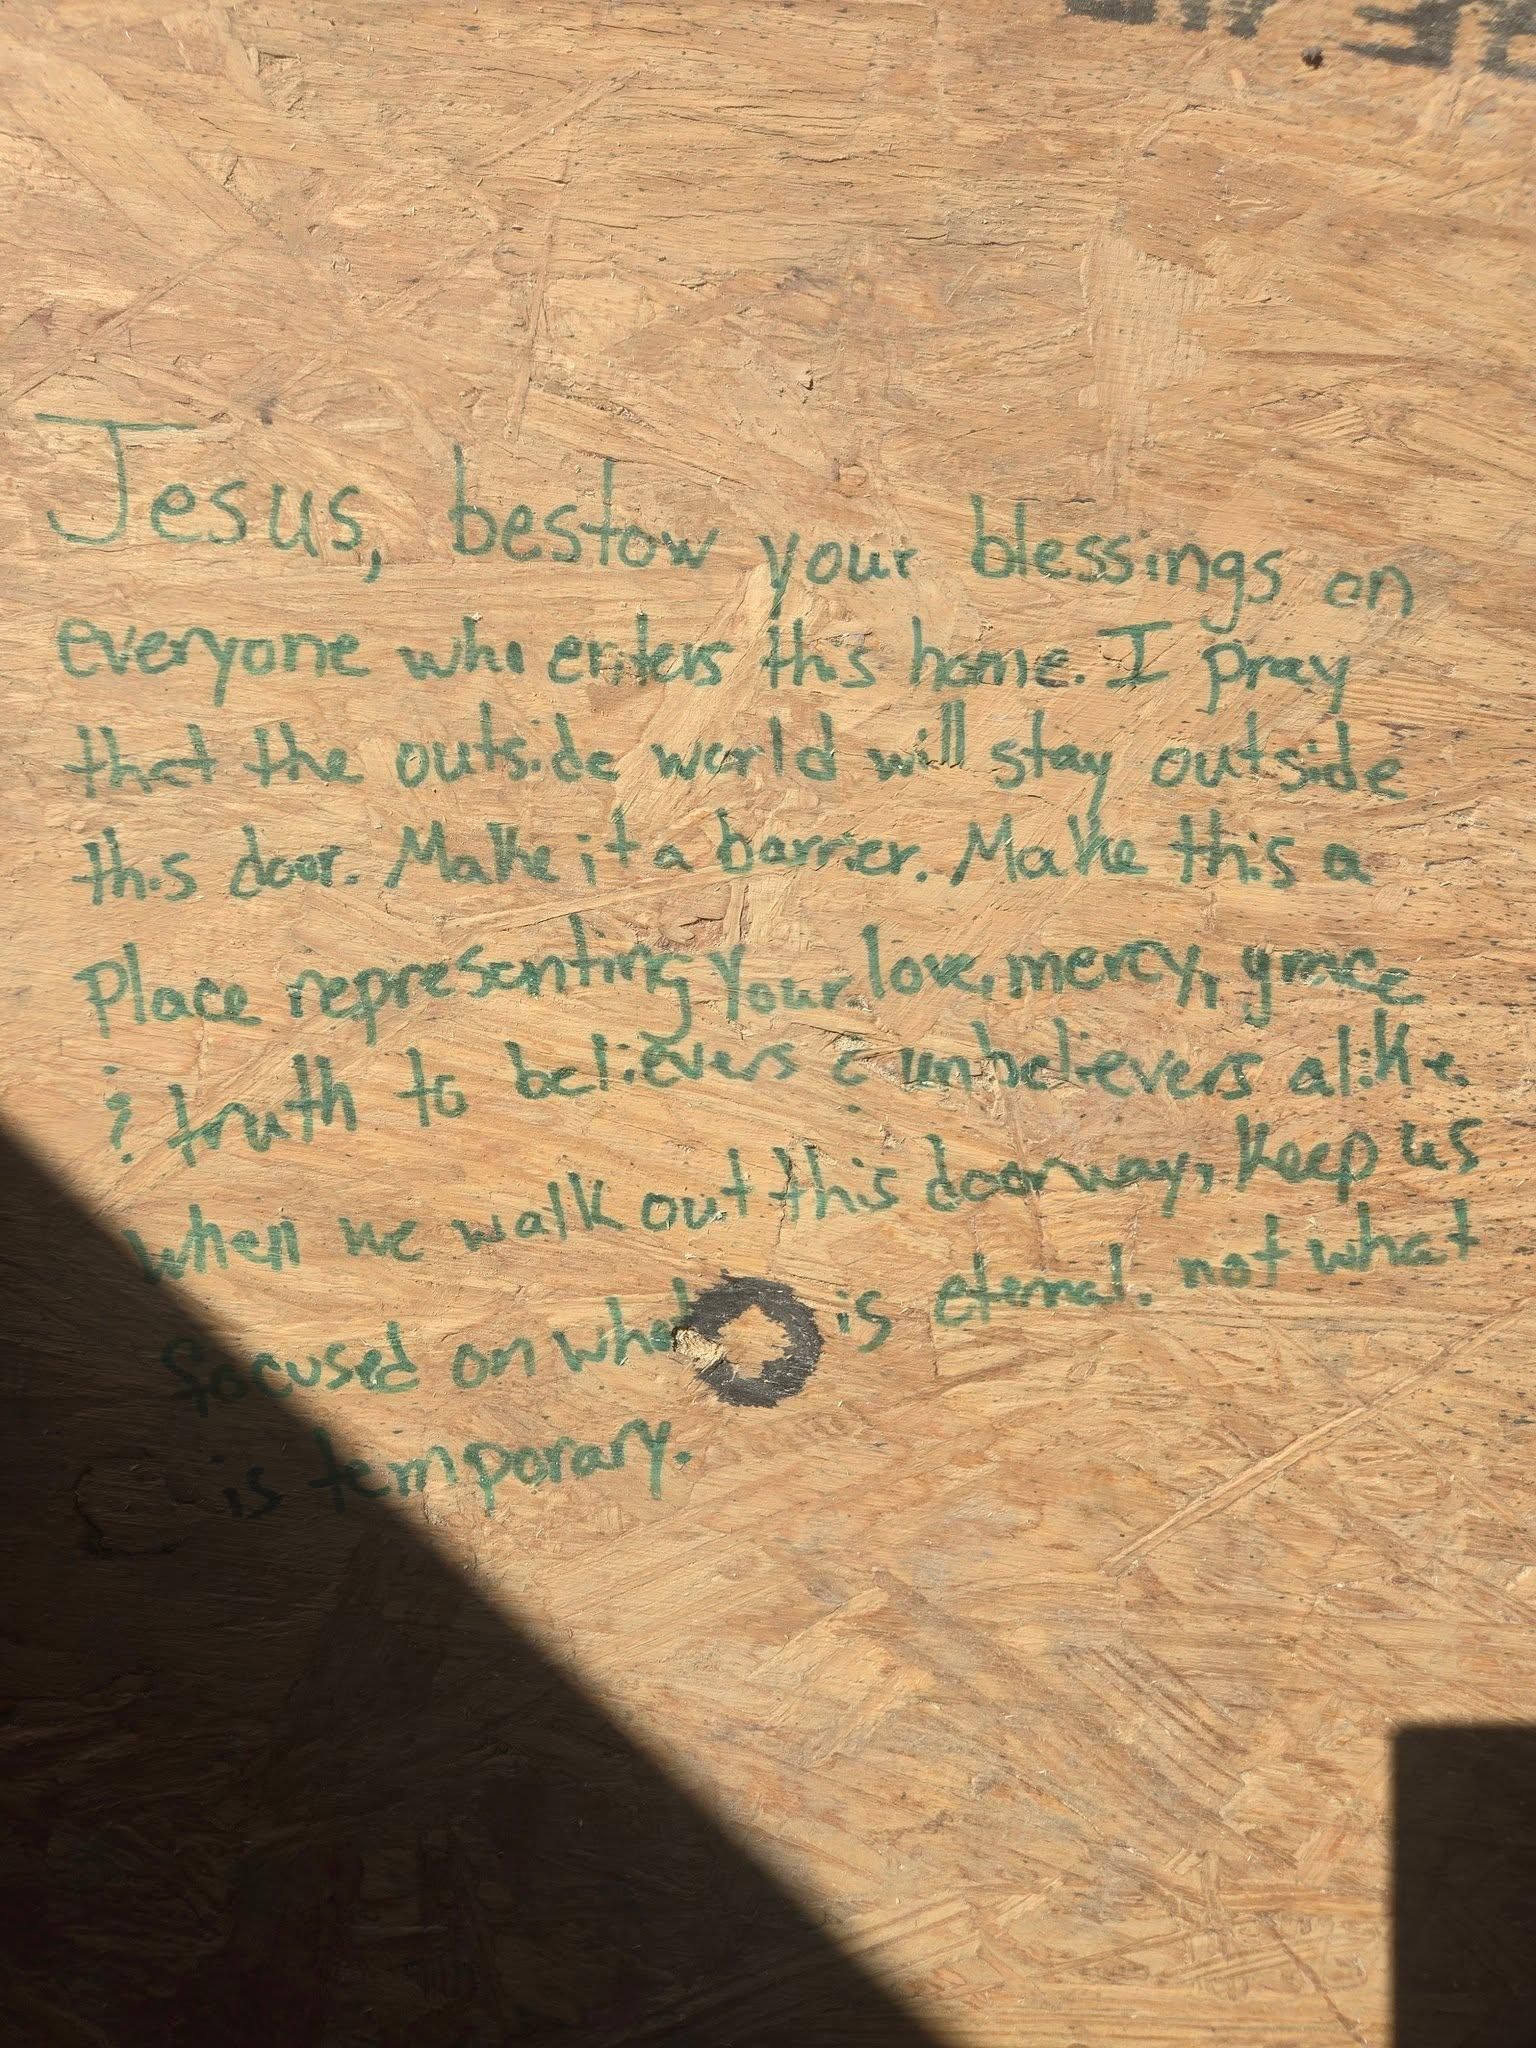 Jesus, bestow your blessings on
everyone who enters this home. I pray
that the outside world will stay outside
this door. Make it a barrier. Make this a
Place representing your love, mercy, grace
& truth to believers & unbelievers alike.
When we walk out this doorway, keep us
focused on what is eternal. not what
is temporary.